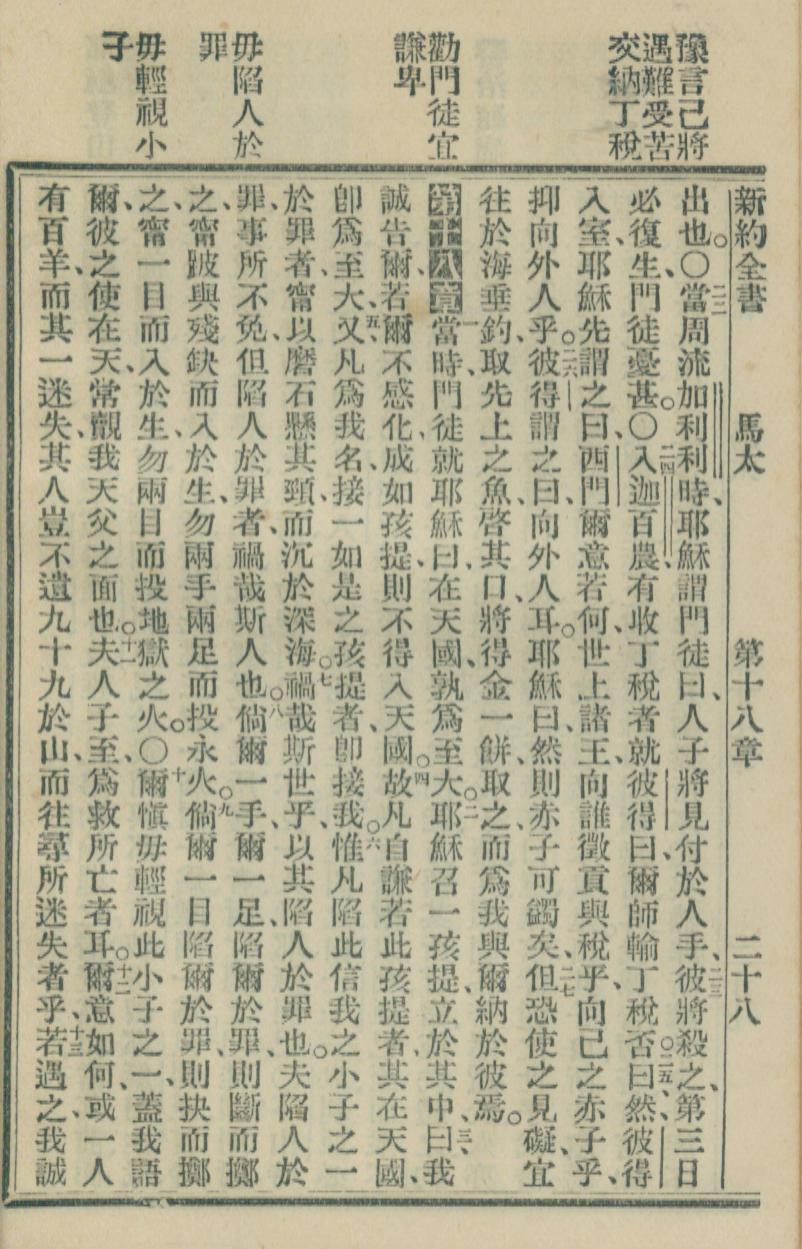 豫言己將
遇難受苦
交納丁稅
勸門徒宜
謙卑
毋陷人於
罪
毋輕視小
子
新約全書 馬太 第十八章 二十八
出也。〇二二當周流加利利時、耶穌謂門徒曰、人子將見付於人手、二三彼將殺之、第三日
必復生、門徒憂甚。〇二四入迦百農、有收丁稅者、就彼得曰、爾師輸丁稅否。二五曰、然、彼得
入室、耶穌先謂之曰、西門、爾意若何、世上諸王、向誰徵貢與稅乎、向己之赤子乎、
抑向外人乎。二六彼得謂之曰、向外人耳。耶穌曰、然則赤子可蠲矣、二七但恐使之見礙、宜
往於海垂釣、取先上之魚、啓其口、將得金一餅、取之、而爲我與爾納於彼焉。
第十八章一當時、門徒就耶穌曰、在天國、孰爲至大。二耶穌召一孩提、立於其中、三曰、我
誠告爾、若爾不感化、成如孩提、則不得入天國。四故凡自謙若此孩提者、其在天國、
卽爲至大、五又凡爲我名、接一如是之孩提者、卽接我。六惟凡陷此信我之小子之一
於罪者、甯以磨石懸其頸、而沉於深海。七禍哉斯世乎、以其陷人於罪也。夫陷人於
罪、事所不免、但陷人於罪者、禍哉斯人也。八倘爾一手、爾一足、陷爾於罪、則斷而擲
之、甯跛與殘缺而入於生、勿兩手兩足而投永火。九倘爾一目陷爾於罪、則抉而擲
之、甯一目而入於生、勿兩目而投地獄之火。〇十爾愼毋輕視此小子之一、蓋我語
爾、彼之使在天、常覿我天父之面也。十一夫人子至、爲救所亡者耳。十二爾意如何、或一人
有百羊、而其一迷失、其人豈不遺九十九於山、而往尋所迷失者乎、十三若遇之、我誠